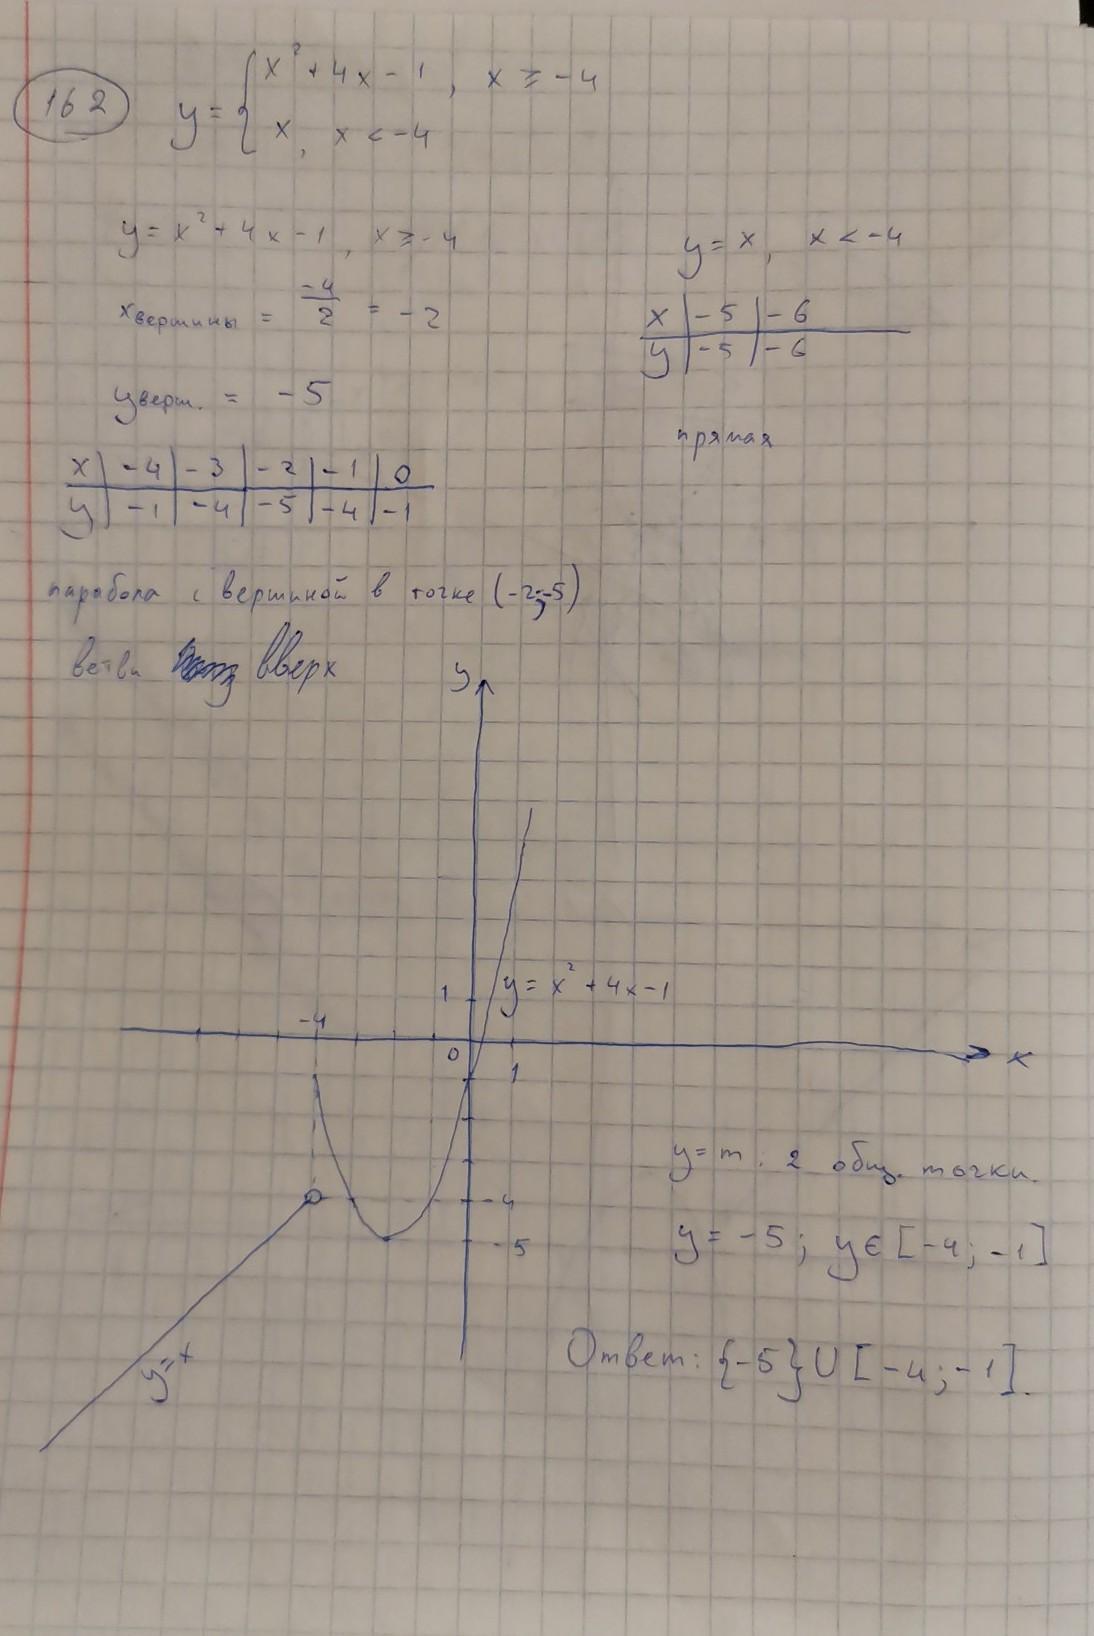 162
y = { x² + 4x - 1, x ≥ -4
x, x < -4
y = x² + 4x - 1, x ≥ -4
xвершины = -4/2 = -2
yверш. = -5
x | -4 | -3 | -2 | -1 | 0
y | -1 | -4 | -5 | -4 | -1
парабола с вершиной в точке (-2;-5)
ветви вверх
y = x, x < -4
x | -5 | -6
y | -5 | -6
прямая
y
1
y = x² + 4x - 1
-4
0
1
x
-4
-5
y=x
y=m : 2 общ. точки.
y = -5; y ∈ [-4; -1]
Ответ: {-5} ∪ [-4; -1].